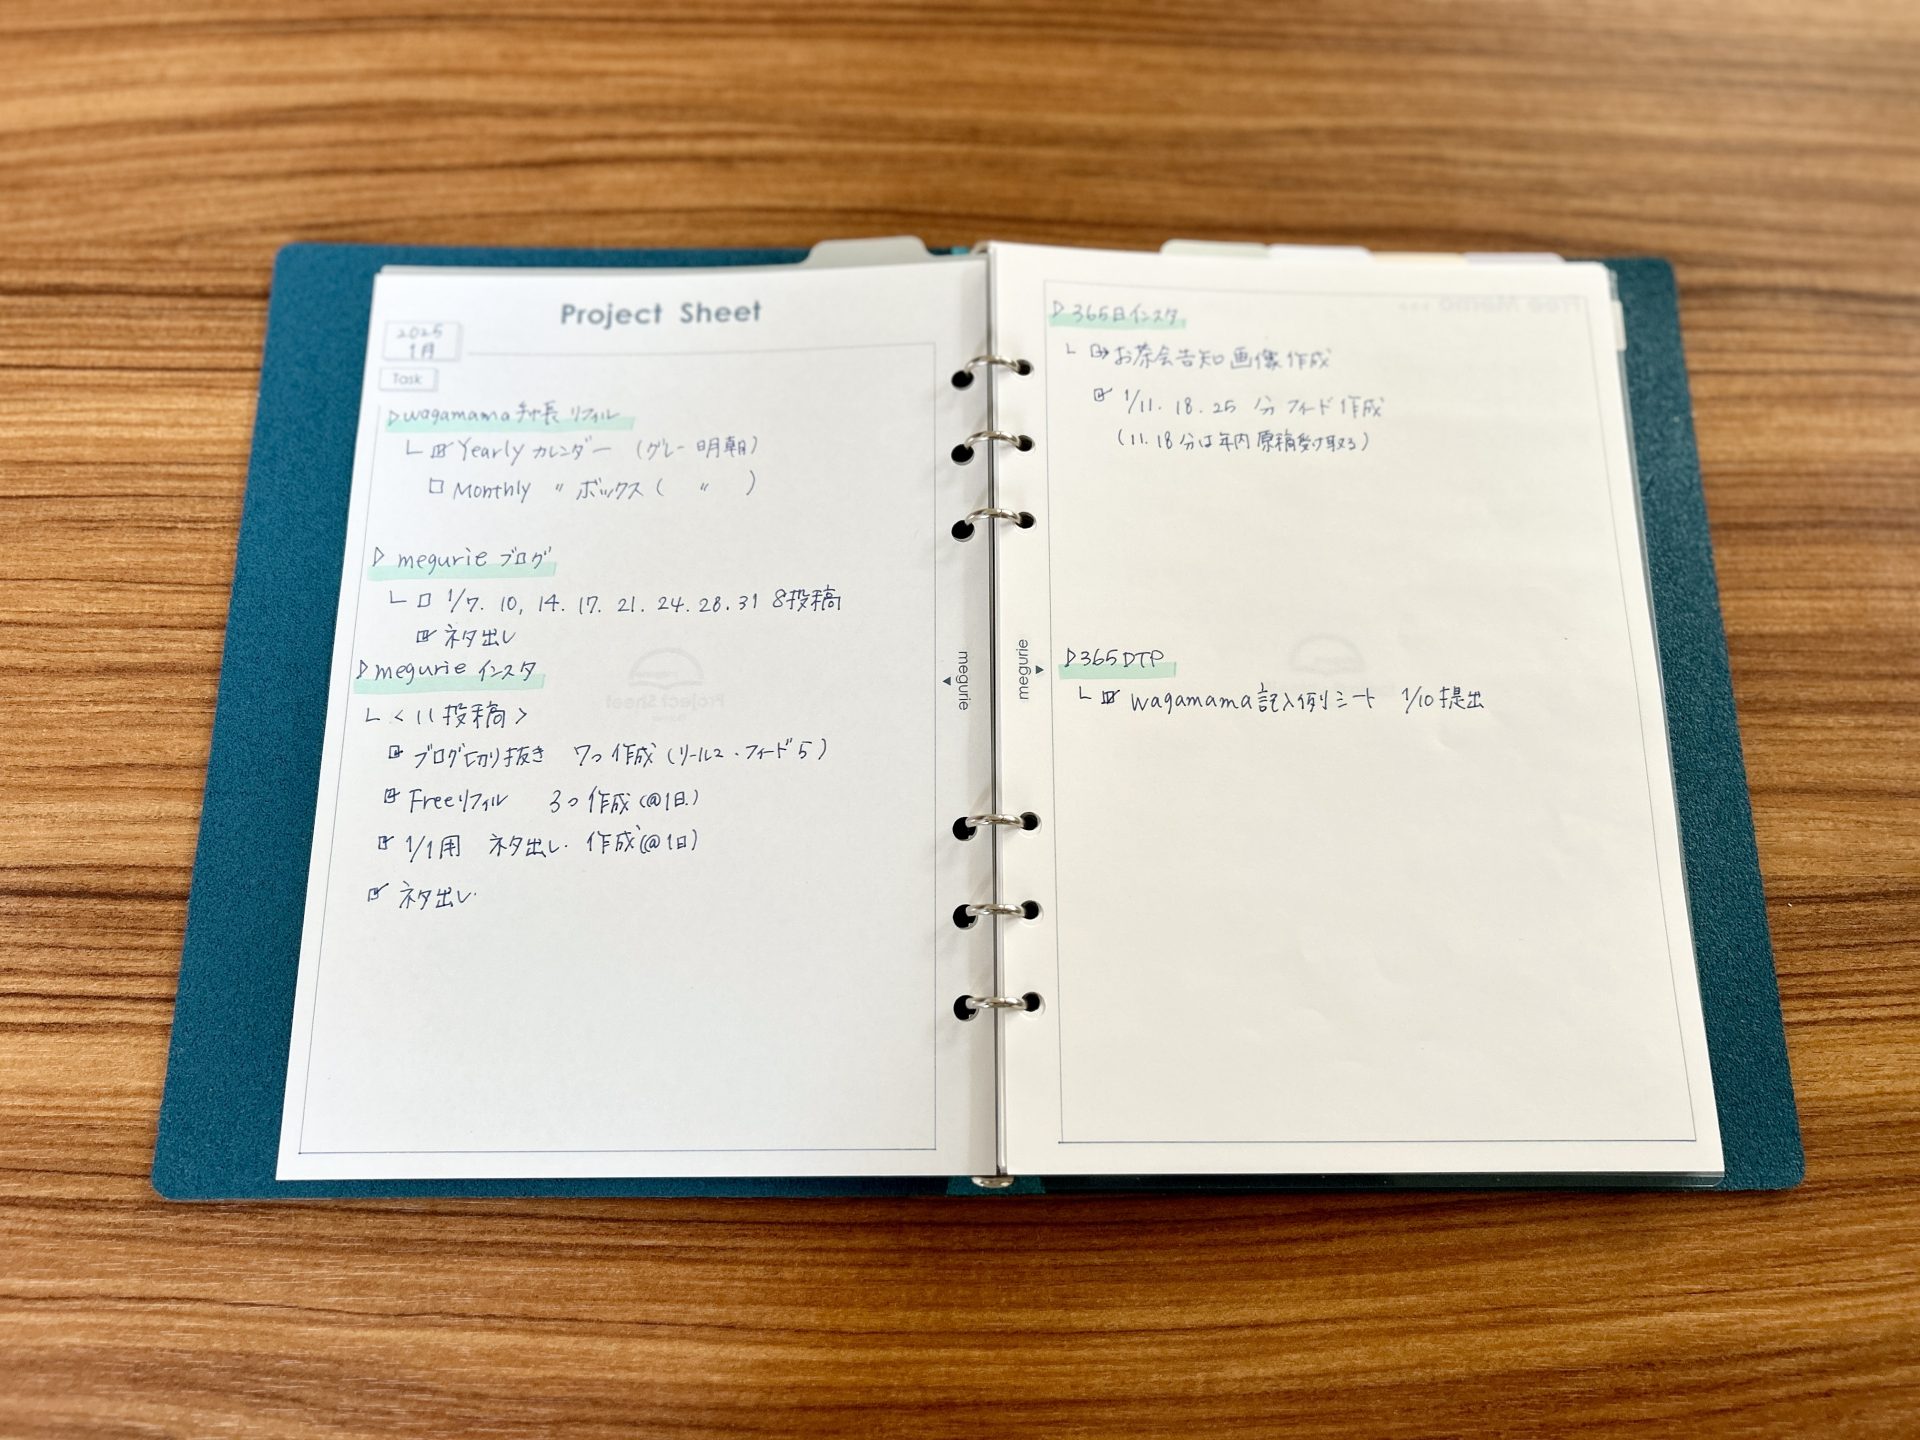 Project Sheet
2025
1月
Task
▷wagamama手帳リフィル
└ ☑ Yearly カレンダー (グレー 明朝)
□ Monthly 〃 ボックス ( 〃 )
▷ megurie ブログ
└ □ 1/7. 10, 14. 17. 21. 24. 28. 31 8投稿
☑ ネタ出し
▷megurie インスタ
└ <11投稿>
☑ ブログ切り抜き 7つ作成 (リール2・フィード5)
☑ Freeリフィル 3つ作成(@1日)
☑ 1/1用 ネタ出し・作成(@1日)
☑ ネタ出し
megurie
▷365日インスタ
└ □→お茶会告知画像作成
☑ 1/11. 18. 25 分フィード作成
(11.18分は年内原稿受け取る)
▷365DTP
└ ☑ wagamama記入例シート 1/10提出
megurie
Free Memo
Project Sheet